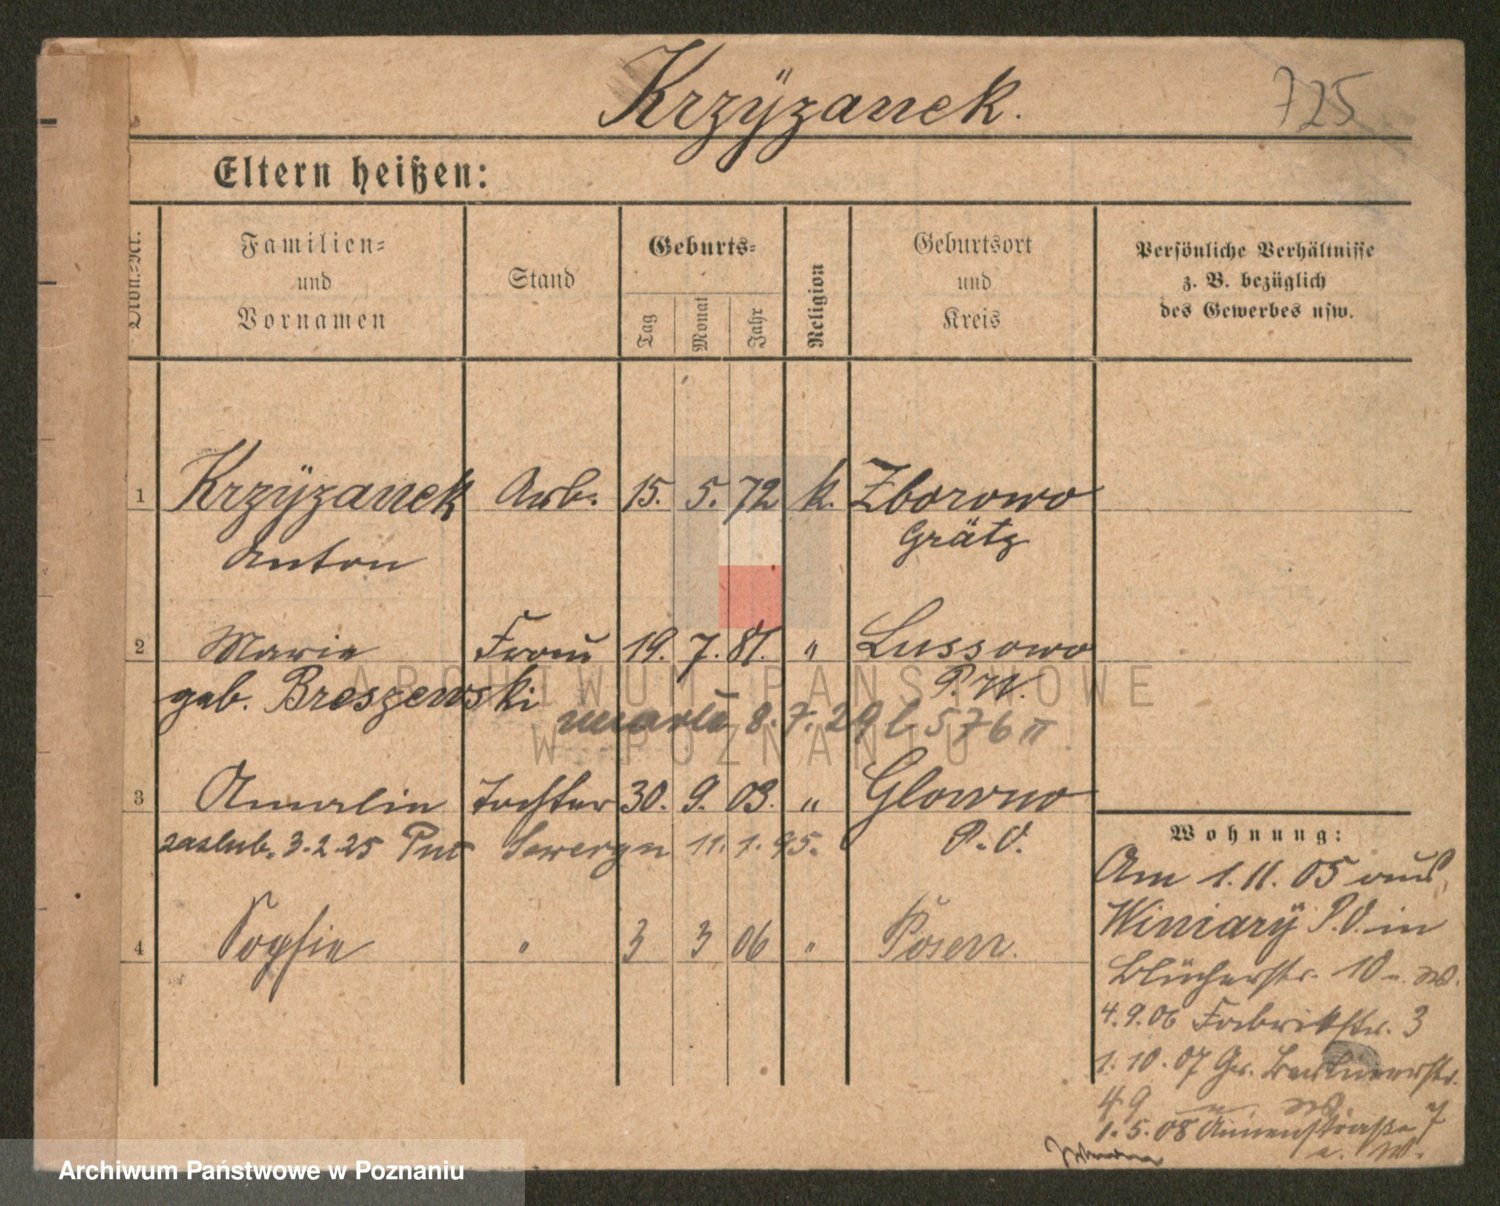 Krzÿzanek.
725
Eltern heißen:
Ordn.-Nr.
Familien-
und
Vornamen
Stand
Geburts-
Tag
Monat
Jahr
Religion
Geburtsort
und
Kreis
Persönliche Verhältnisse
z. B. bezüglich
des Gewerbes usw.
1 Krzÿzanek Arb. 15. 5. 72 k. Zborowo
Anton Grätz
2 Marie Frau 19. 7. 81. " Lussowo
geb. Breszewski P. W.
zmarła 8.7.29 l. 576 II
3 Amalie Tochter 30. 9. 03. " Glowno
zaślub. 3.2.25 Seweryn 11.1.95. P. O.
4 Sophie " 3 3 06 " Posen.
Wohnung:
Am 1.11.05 aus
Winiary P.O. in
Blücherstr. 10
4.9.06 Fabrikstr. 3
1.10.07 Gr. Berlinerstr.
49
1.5.08 Annenstraße 7
ARCHIWUM PAŃSTWOWE
W POZNANIU
Archiwum Państwowe w Poznaniu